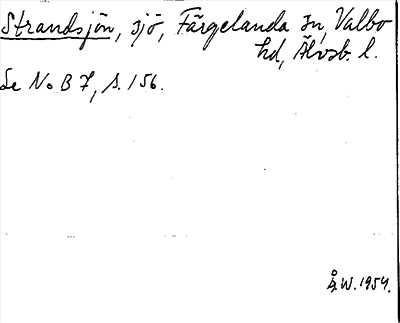 Strandsjön, sjö, Färgelanda sn, Valbo
hd, Älvsb. l.
Se No B 7, s. 156.
Å.W. 1954.